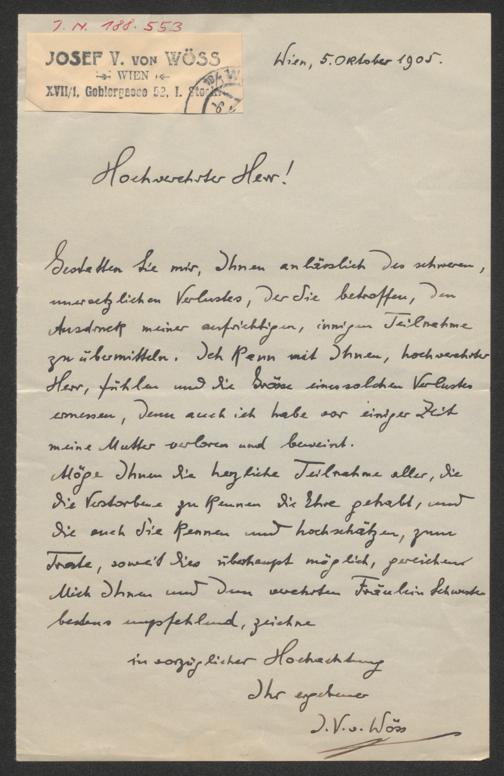 I. N. 188.553
JOSEF V. VON WÖSS
WIEN
XVII/1, Geblergasse 52, I. Stock.
Wien, 5. Oktober 1905.
Hochverehrter Herr!
Gestatten Sie mir, Ihnen anlässlich des schweren,
unersetzlichen Verlustes, der Sie betroffen, den
Ausdruck meiner aufrichtigen, innigen Teilnahme
zu übermitteln. Ich kann mit Ihnen, hochverehrter
Herr, fühlen und die Grösse eines solchen Verlustes
ermessen, denn auch ich habe vor einiger Zeit
meine Mutter verloren und beweint.
Möge Ihnen die herzliche Teilnahme aller, die
die Verstorbene zu kennen die Ehre gehabt, und
die auch Sie kennen und hochschätzen, zum
Troste, soweit dies überhaupt möglich, gereichen!
Mich Ihnen und dem verehrten Fräulein Schwester
bestens empfehlend, zeichne
in vorzüglicher Hochachtung
Ihr ergebener
J. V. v. Wöss